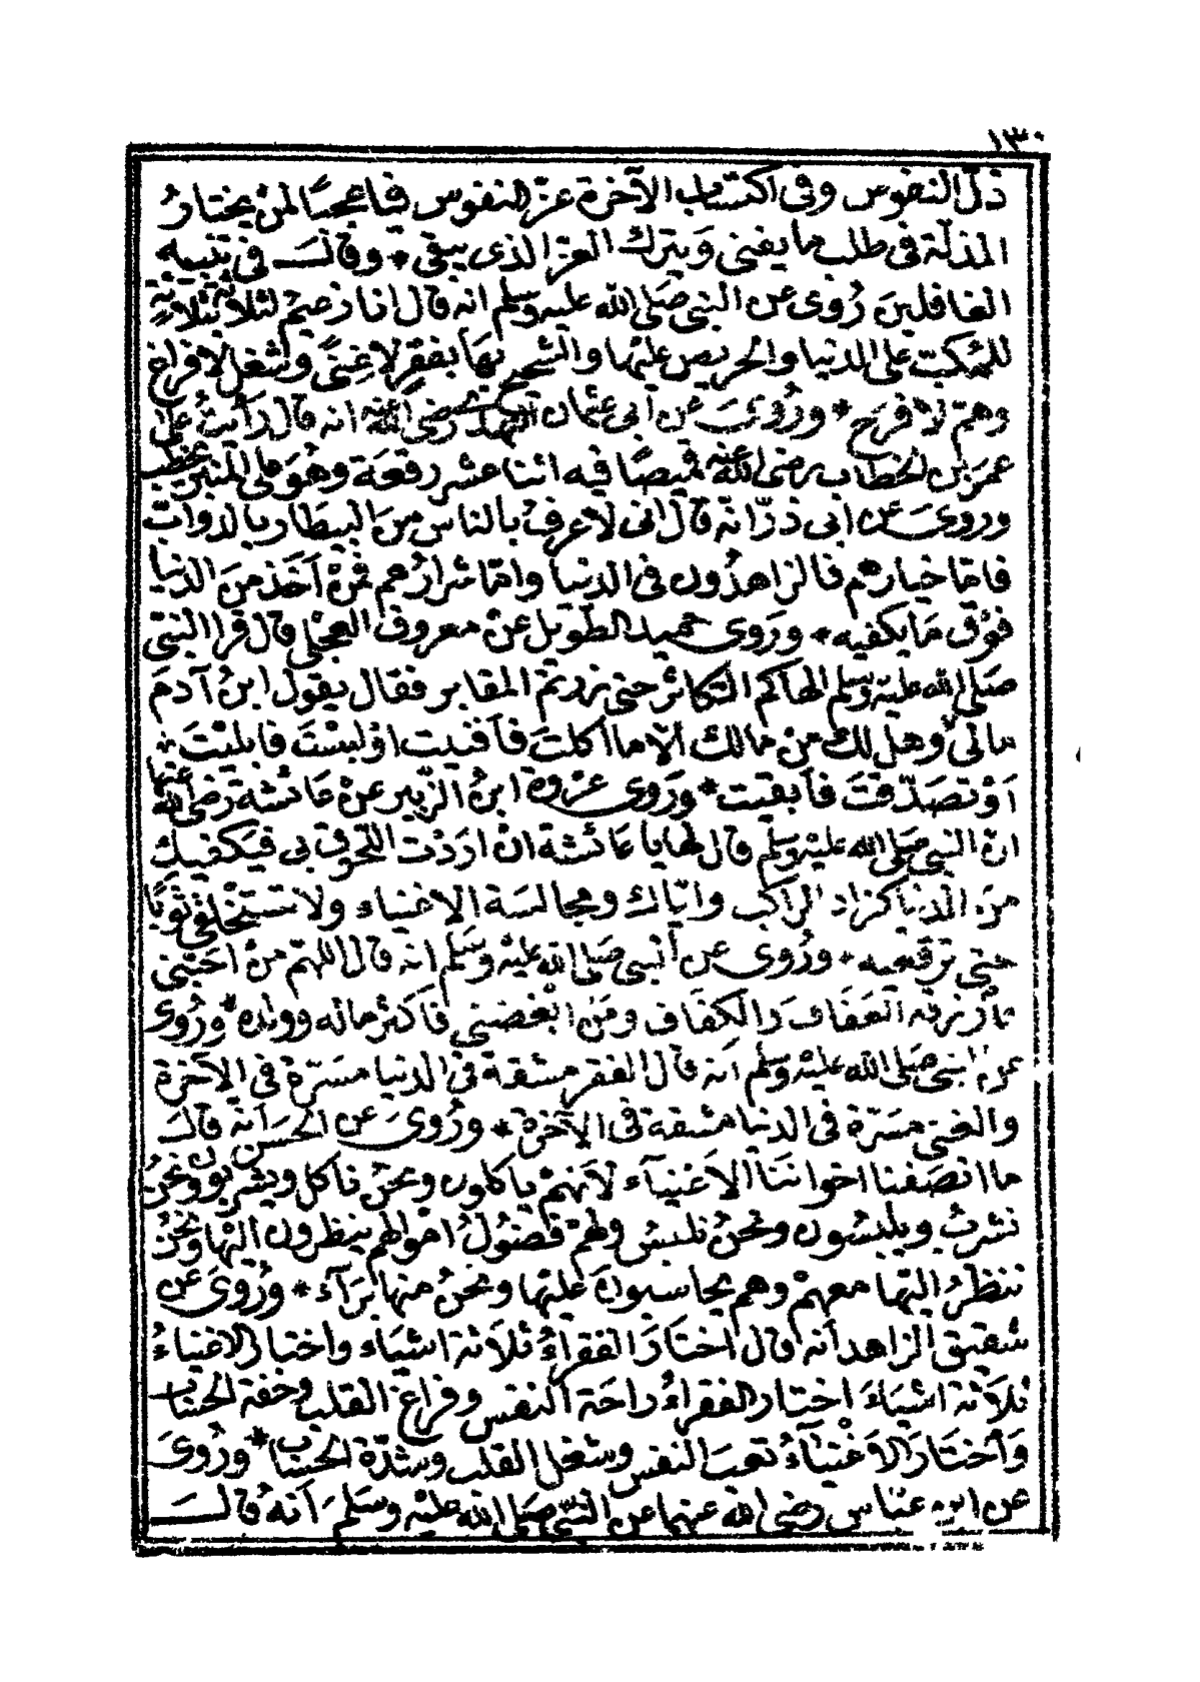 ١٣٠
ذلّ النفوس وفى اكتساب الآخرة عزّ النفوس فيا عجبًا لمنْ يختارُ
المذلّة فى طلب ما يفنى وَيترك العزّ الذى يبقى * وقالـــ فى تنبيه
الغافلينَ رُوى عن النبى صَلى الله عليه وسَلم انه قال انا زعيمٌ لثلاثةٍ بثلاثةٍ
للمكبّ على الدنيا والحريص عليْها والشحيح بهَا بفقرٍ لا غِنىً وشغلٍ لا فراغ
وهمّ لا فرحَ * ورُوىَ عن ابى عثمان النهدى رضى الله عنه انه قال رَأيتُ على
عمرَ بن الخطاب رضى الله عنه قميصًا فيه اثنا عشر رقعَة وهُوَ على المنبر يخطب
وروىَ عن ابى ذرّ انّه قال انى لاعرفُ بالناس منَ البيطار بالدوابّ
فامّا خيارهم فالزاهدُون فى الدنيا وامّا شرارُهم فمَنْ اَخَذ منَ الدنيا
فوْق مَا يكفيه * ورَوى حميد الطويل عنْ معروف العجلى قال قرا النبىّ
صَلى الله عليْه وسَلم الهاكم التكاثرُ حتى زرتمُ المقابر فقال يقول ابنُ آدمَ
مالى وهل لكَ منْ مالك الّا ما اكلتَ فافنيت اوْ لبسْتَ فابليْتَ
اَوْ تصَدّقتَ فابقيت * ورَوى عرْوة ابنُ الزّبير عنْ عَائشة رضى الله عنها
انّ النبى صَلى الله عليْه وسَلم قال لها يا عَائشة انْ ارَدْت اللحوق بى فيَكفيك
منَ الدنيا كزاد الراكب وايّاك ومجالسَة الاغنياء ولا تستخْلقى ثوْبًا
حتى ترقعيه * ورُوى عن النبى صَلى الله عليْه وسَلم انه قال اللهمّ منْ احَبّنى
فارْزقه العَفَاف وَالكفَاف ومَنْ ابْغضنى فاَكثر مالَه وولدَه * ورُوى
عن النبى صَلى الله عليْه وسَلم اَنه قال الفقر مشقة فى الدنيا مسَرّة فى الآخرة
والغنى مسَرّة فى الدنيا مشقة فى الآخرة * ورُوىَ عن الحسَن اَنّه قالـــ
ما انصَفنا اخواننَا الاَغنيآء لاَنهمْ ياكلون ونحنُ ناكل ويشربون ونحنُ
نشربُ ويلبسُون ونحنُ نلبسُ ولهمْ فضُولُ امْوالهم ينظرون اليْها ونحنُ
ننظرُ اليْها معهمْ وهم يحاسبونَ عليْها ونحنُ منها بَرَآء * ورُوىَ عن
شقيق الزاهد اَنّه قال اختَارَ الفقراءُ ثلاَثة اشيَاء واختار الاغنياءُ
ثلاَثة اشيَاءَ اختار الفقراءُ راحَة النفس وفراغ القلب وخفة الحسَاب
وَاختَارَ الاَغْنيَآءُ تعبَ النفس وشغل القلب وشدّة الحسَاب * ورُوىَ
عن ابن عبّاس رضى الله عنهما عن النبىّ صَلى الله عليْه وسَلمَ اَنهُ قالـــ